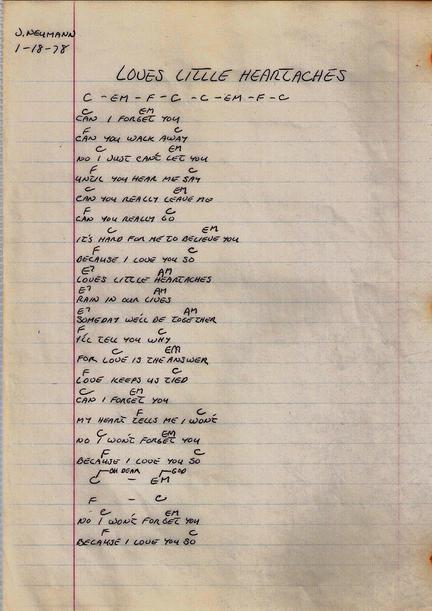 J. NEUMANN
1-18-78
LOVES LITTLE HEARTACHES
C - EM - F - C - C - EM - F - C
C EM
CAN I FORGET YOU
F C
CAN YOU WALK AWAY
C EM
NO I JUST CAN'T LET YOU
F C
UNTIL YOU HEAR ME SAY
C EM
CAN YOU REALLY LEAVE ME
F C
CAN YOU REALLY GO
C EM
IT'S HARD FOR ME TO BELIEVE YOU
F C
BECAUSE I LOVE YOU SO
E7 AM
LOVES LITTLE HEARTACHES
E7 AM
RAIN IN OUR LIVES
E7 AM
SOMEDAY WE'LL BE TOGETHER
F C
I'LL TELL YOU WHY
C EM
FOR LOVE IS THE ANSWER
F C
LOVE KEEPS US TIED
C EM
CAN I FORGET YOU
F C
MY HEART TELLS ME I WON'T
C EM
NO I WON'T FORGET YOU
F C
BECAUSE I LOVE YOU SO
OH DEAR GOD
C - EM
F - C
C EM
NO I WON'T FORGET YOU
F C
BECAUSE I LOVE YOU SO